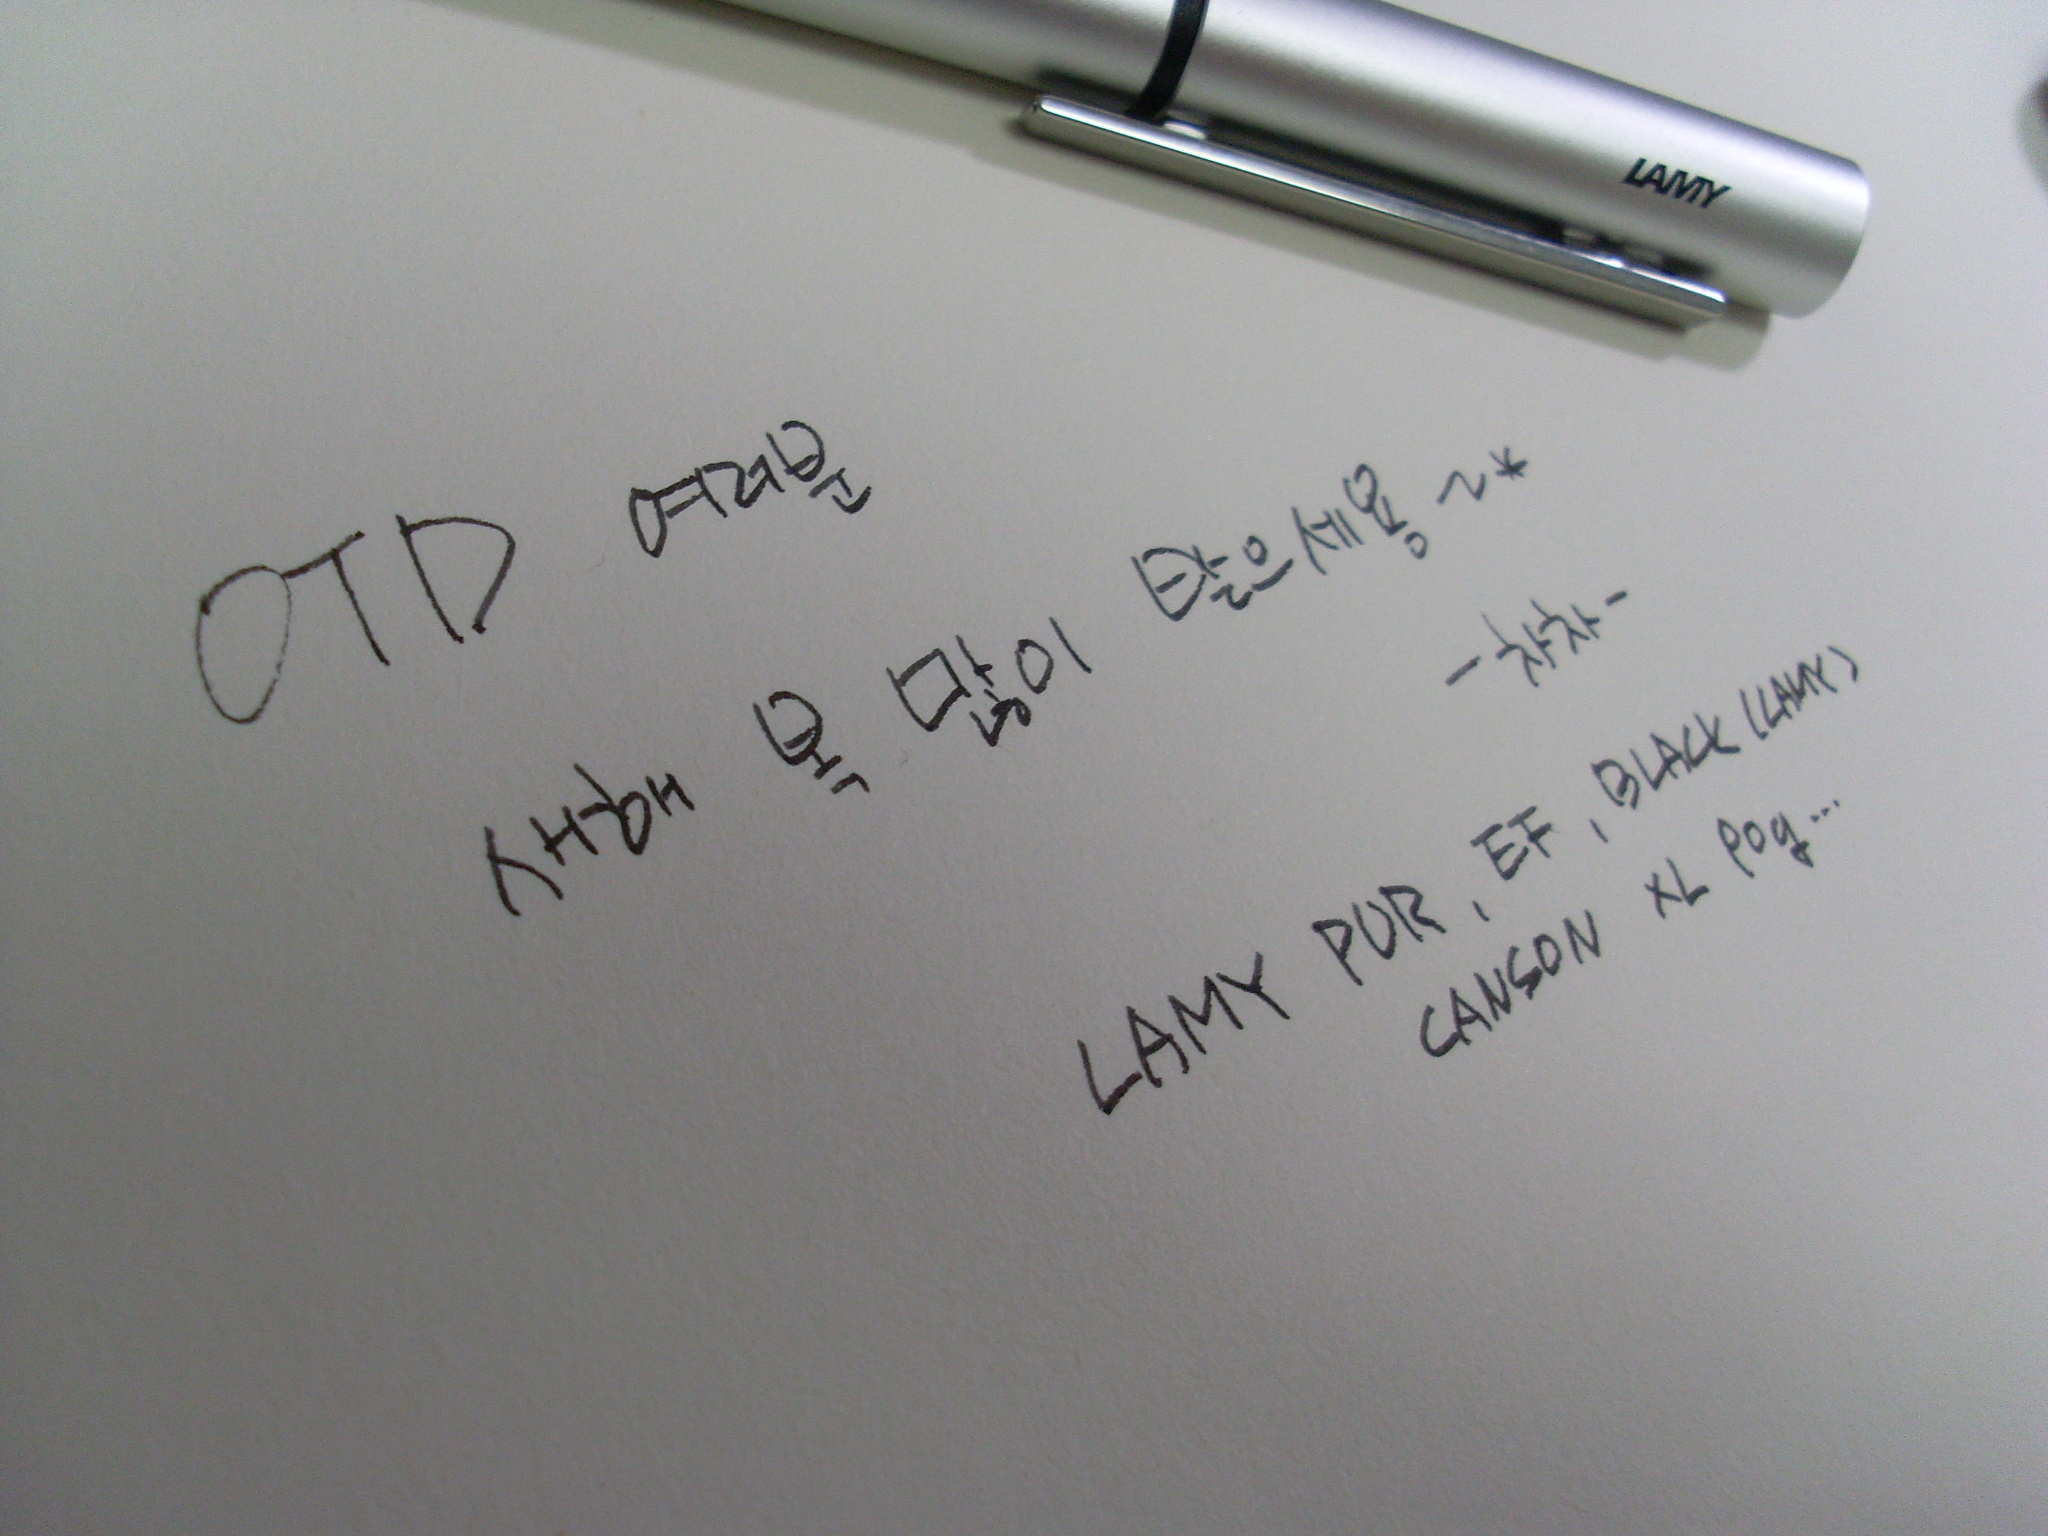 LAMY
OTD 여러분
새해 복 많이 받으세용~*
-차차-
LAMY PUR, EF, BLACK (LAMY)
CANSON XL